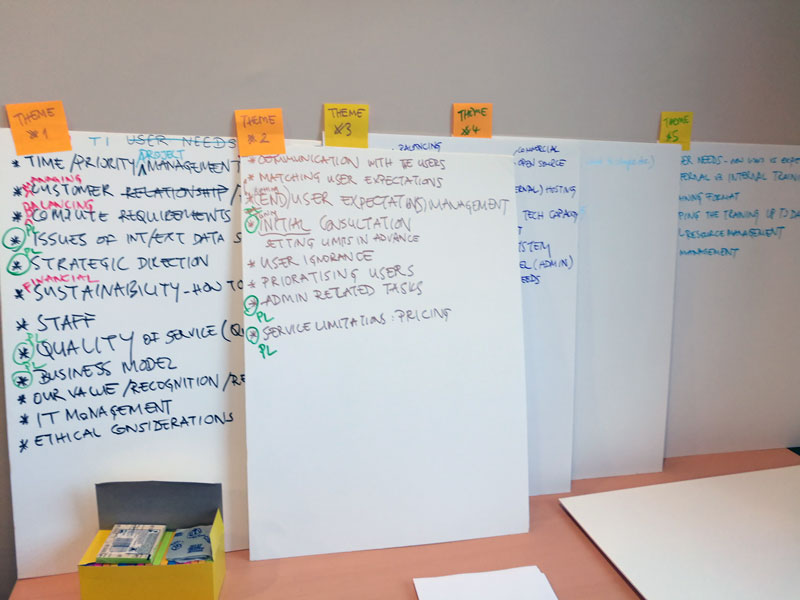 THEME
*1
T1 USER NEEDS
PROJECT
* TIME/PRIORITY/MANAGEMENT
MANAGING
* CUSTOMER RELATIONSHIP/
BALANCING
* COMPUTE REQUIREMENTS
PL
* ISSUES OF INT/EXT DATA S
PL
* STRATEGIC DIRECTION
FINANCIAL
* SUSTAINABILITY - HOW TO
* STAFF
PL
* QUALITY OF SERVICE (QU
PL
* BUSINESS MODEL
* OUR VALUE/RECOGNITION/RE
* IT MANAGEMENT
* ETHICAL CONSIDERATIONS
THEME
*2
* COMMUNICATION WITH THE USERS
* MATCHING USER EXPECTATIONS
* (END) USER EXPECTAT(INS) MANAGEMENT
* INITIAL CONSULTATION
SETTING LIMITS IN ADVANCE
* USER IGNORANCE
* PRIORATISING USERS
* ADMIN RELATED TASKS
PL
* SERVICE LIMITATIONS: PRICING
PL
THEME
*3
BALANCING
THEME
*4
COMMERCIAL
OPEN SOURCE
RNAL) HOSTING
TECH CAPACITY
STEM
EL (ADMIN)
EEDS
THEME
*5
ER NEEDS - 
ERNAL OR INTERNAL TRAINING
NING FORMAT
PING THE TRAINING UP TO DA
RESOURCE MANAGEMENT
MANAGEMENT